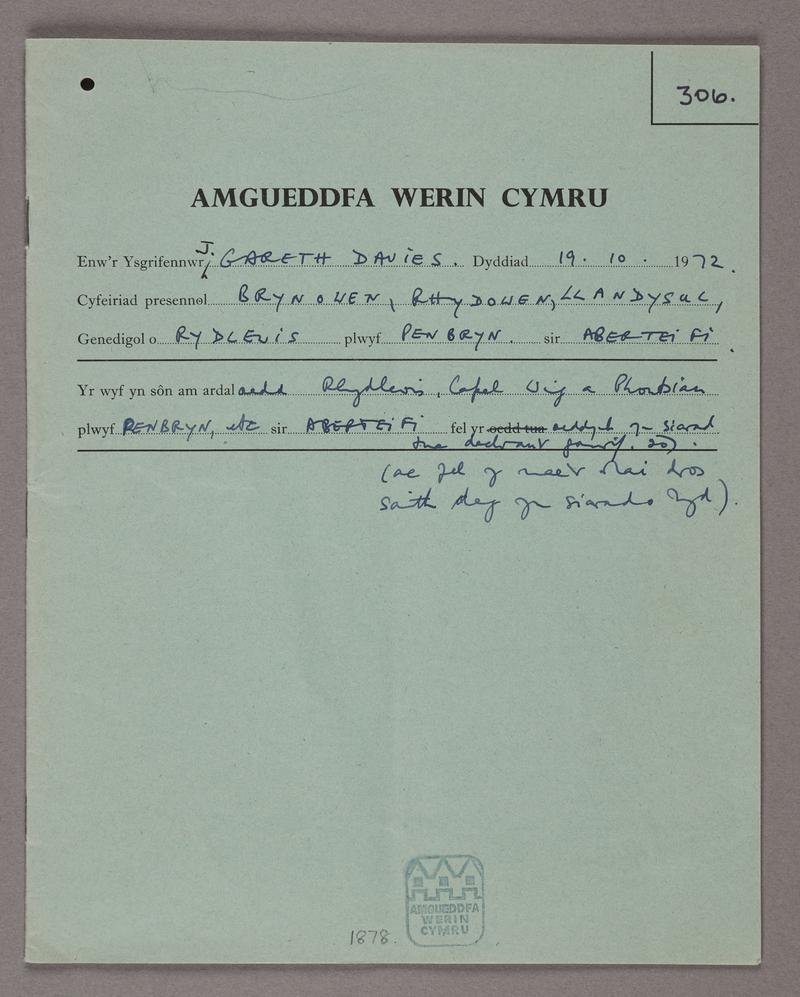 306.
AMGUEDDFA WERIN CYMRU
Enw'r Ysgrifennwr J. GARETH DAVIES. Dyddiad 19. 10. 1972.
Cyfeiriad presennol BRYNOWEN, RHYDOWEN, LLANDYSUL,
Genedigol o RYDLEWIS plwyf PENBRYN. sir ABERTEIFI.
Yr wyf yn sôn am ardaloedd Rhydlewis, Capel Wig a Phontsian
plwyf PENBRYN, etc sir ABERTEIFI fel yr oedd tua oeddych yn siarad
tua dechrau'r ganrif.
(ac fel y mae'r rhai dros
saith deg yn siarad o hyd).
AMGUEDDFA
WERIN
CYMRU
1878.